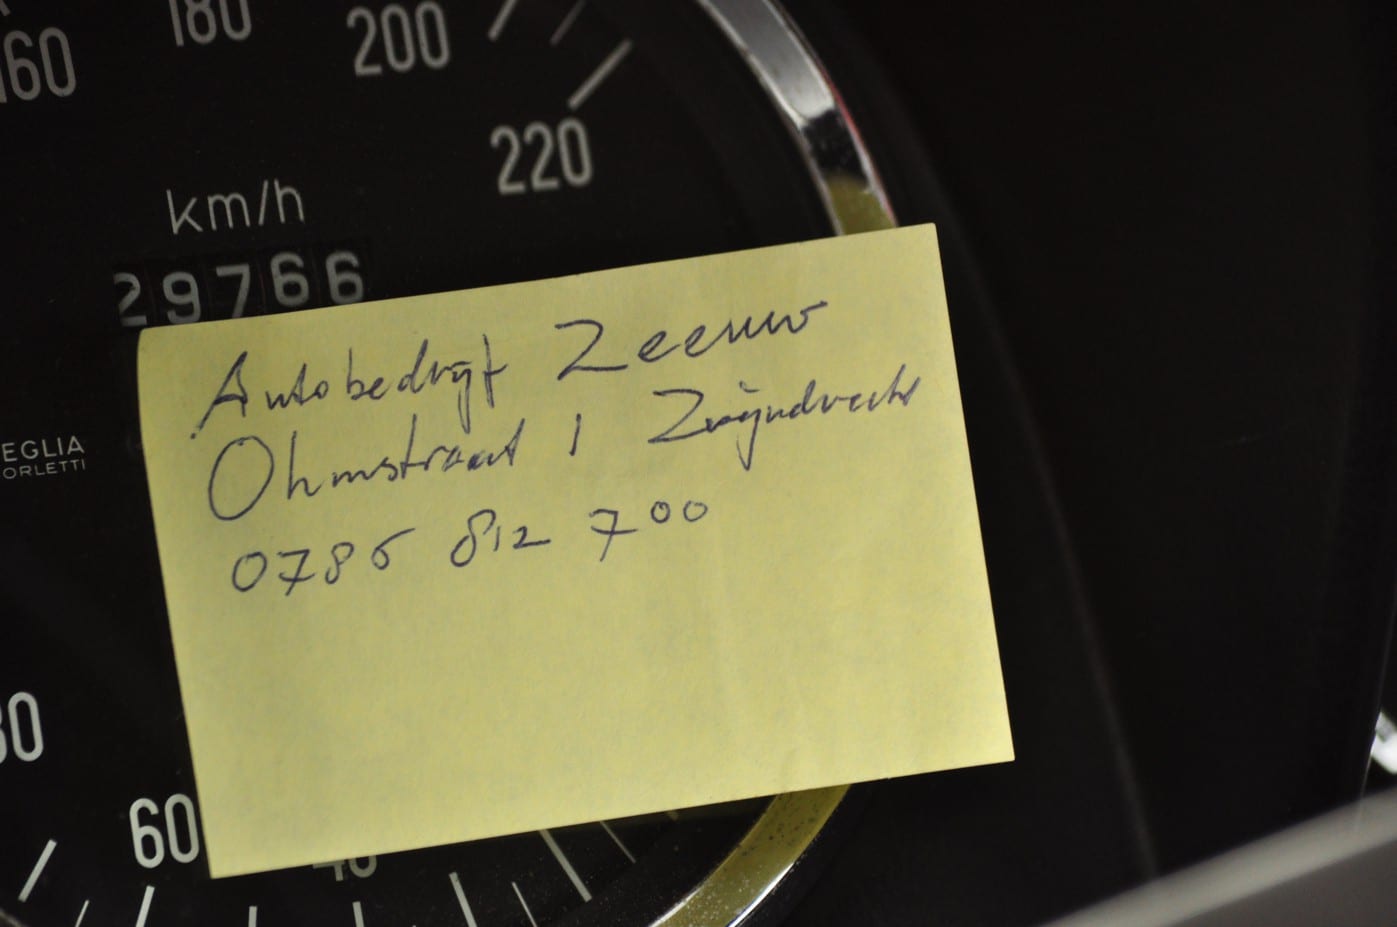 160
180
200
220
km/h
29766
Autobedrijf Zeeuw
Ohmstraat 1 Zwijndrecht
0786 812 700
EGLIA
ORLETTI
80
60
40